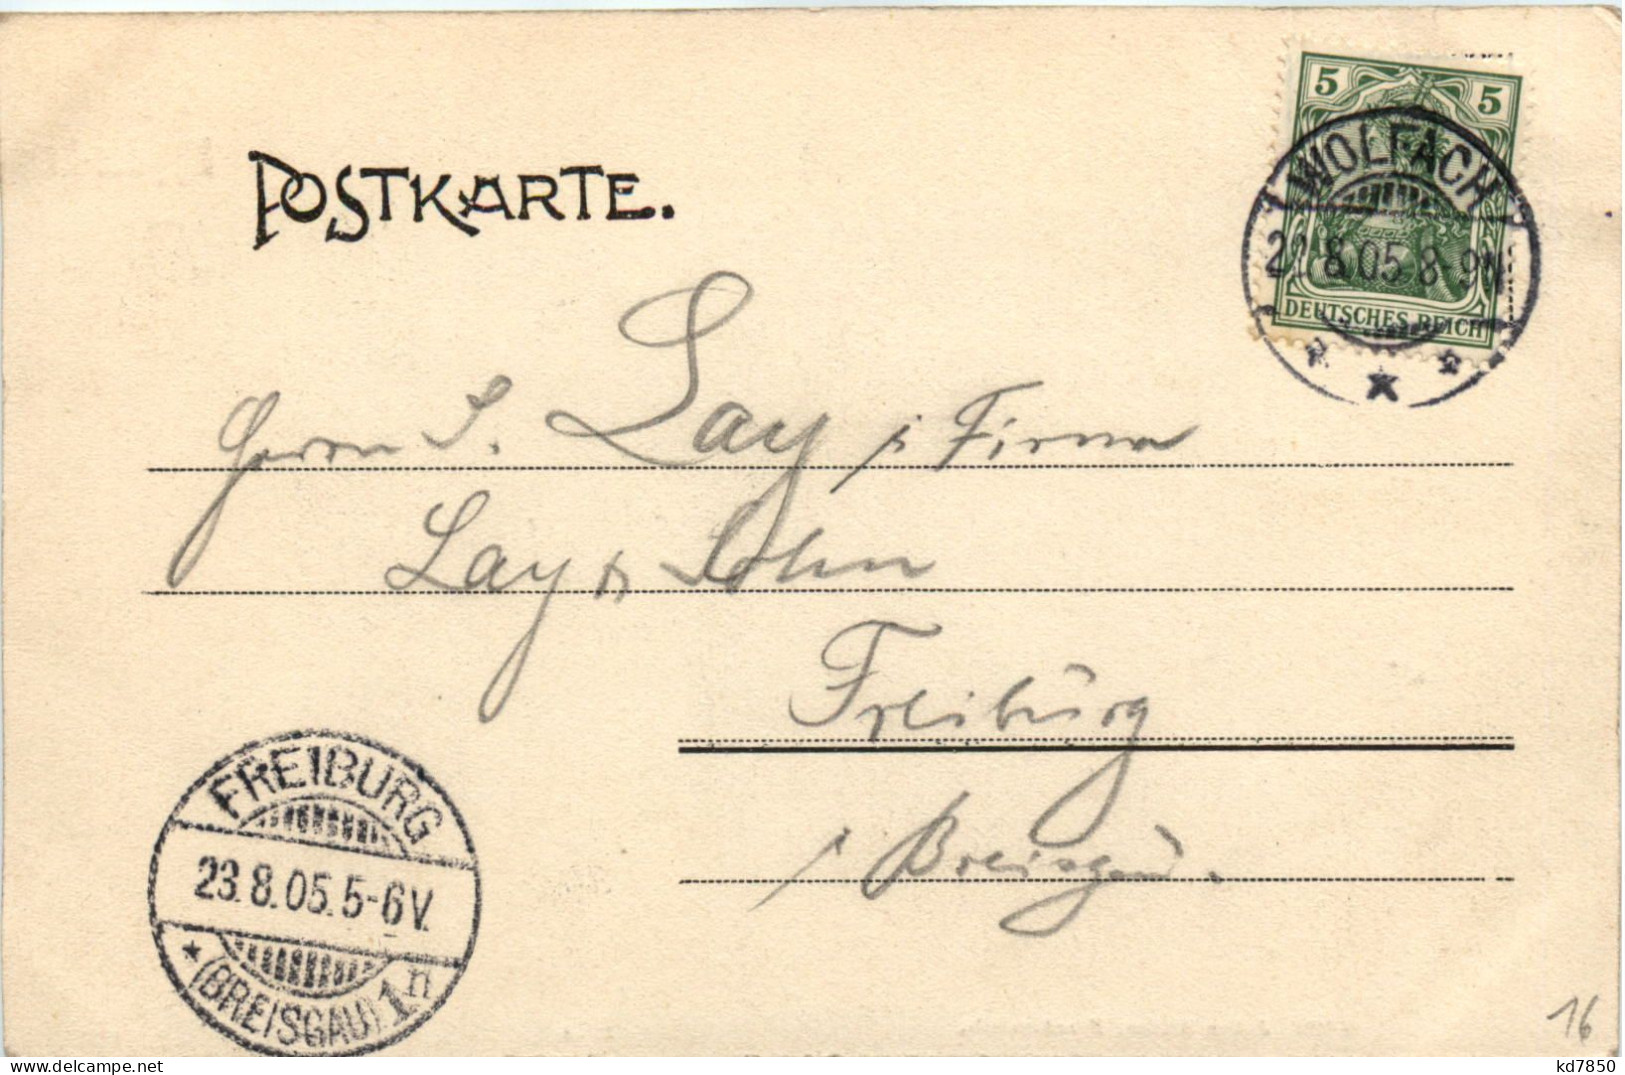 POSTKARTE.
5 5
WOLFACH
22.8.05.8-9N
DEUTSCHES REICH
Herrn S. Lay i. Firma
Lay & Sohn
Freiburg
i Breisgau.
FREIBURG
23.8.05.5-6V.
(BREISGAU) 1n
16
kd7850